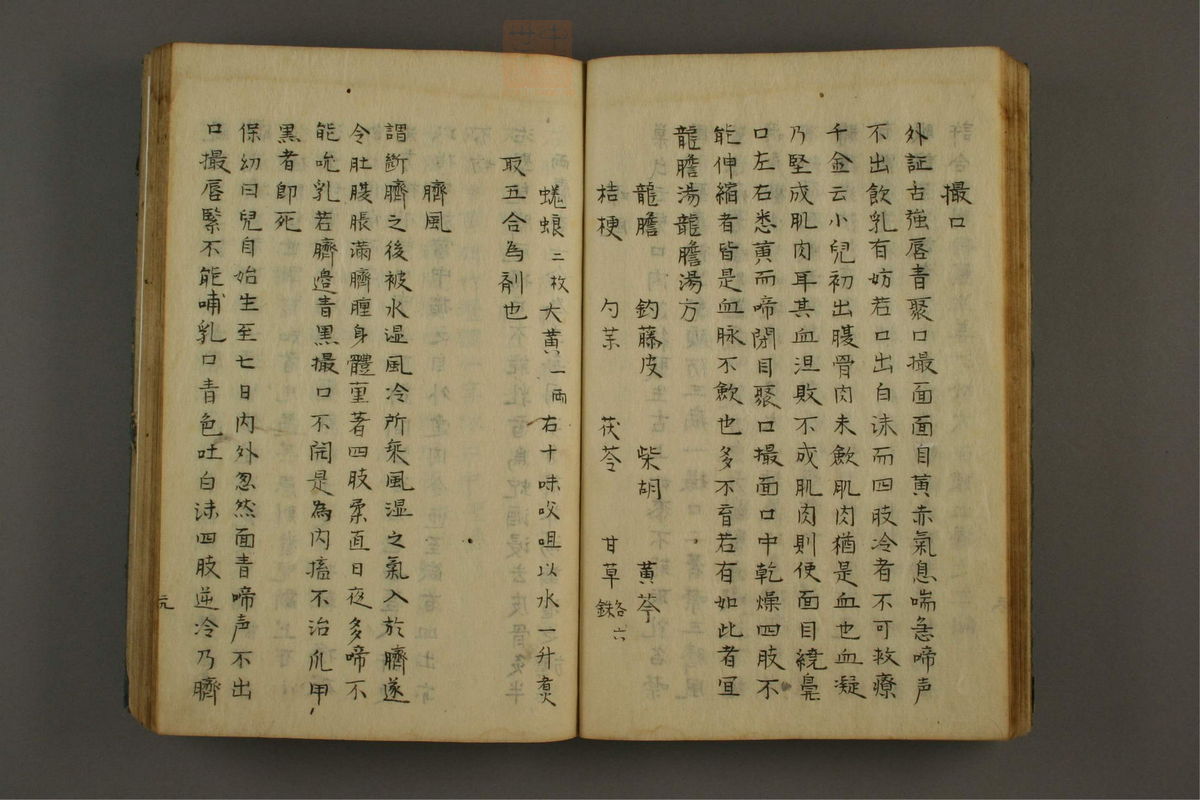 撮口
外証古強唇青聚口撮面面目黄赤氣息喘急啼声
不出飲乳有妨若口出白沫而四肢冷者不可救療
千金云小兒初出腹骨肉未歛肌肉猶是血也血凝
乃堅成肌肉耳其血沮敗不成肌肉則使面目繞鼻
口左右悉黄而啼閉目聚口撮面口中乾燥四肢不
能伸縮者皆是血脉不歛也多不育若有如此者宜
龍膽湯龍膽湯方
龍膽 釣藤皮 柴胡 黄芩
桔梗 勺薬 茯苓 甘草各六銖
蜣蜋二枚大黄一両右十味㕮咀以水一升煮
取五合為剤也
臍風
謂断臍之後被水湿風冷所乘風湿之氣入於臍遂
令肚腹脹滿臍腫身體重著四肢柔直日夜多啼不
能吮乳若臍邉青黒撮口不開是為内搐不治爪甲
黒者即死
保幼曰兒自始生至七日内外忽然面青啼声不出
口撮唇緊不能哺乳口青色吐白沫四肢逆冷乃臍